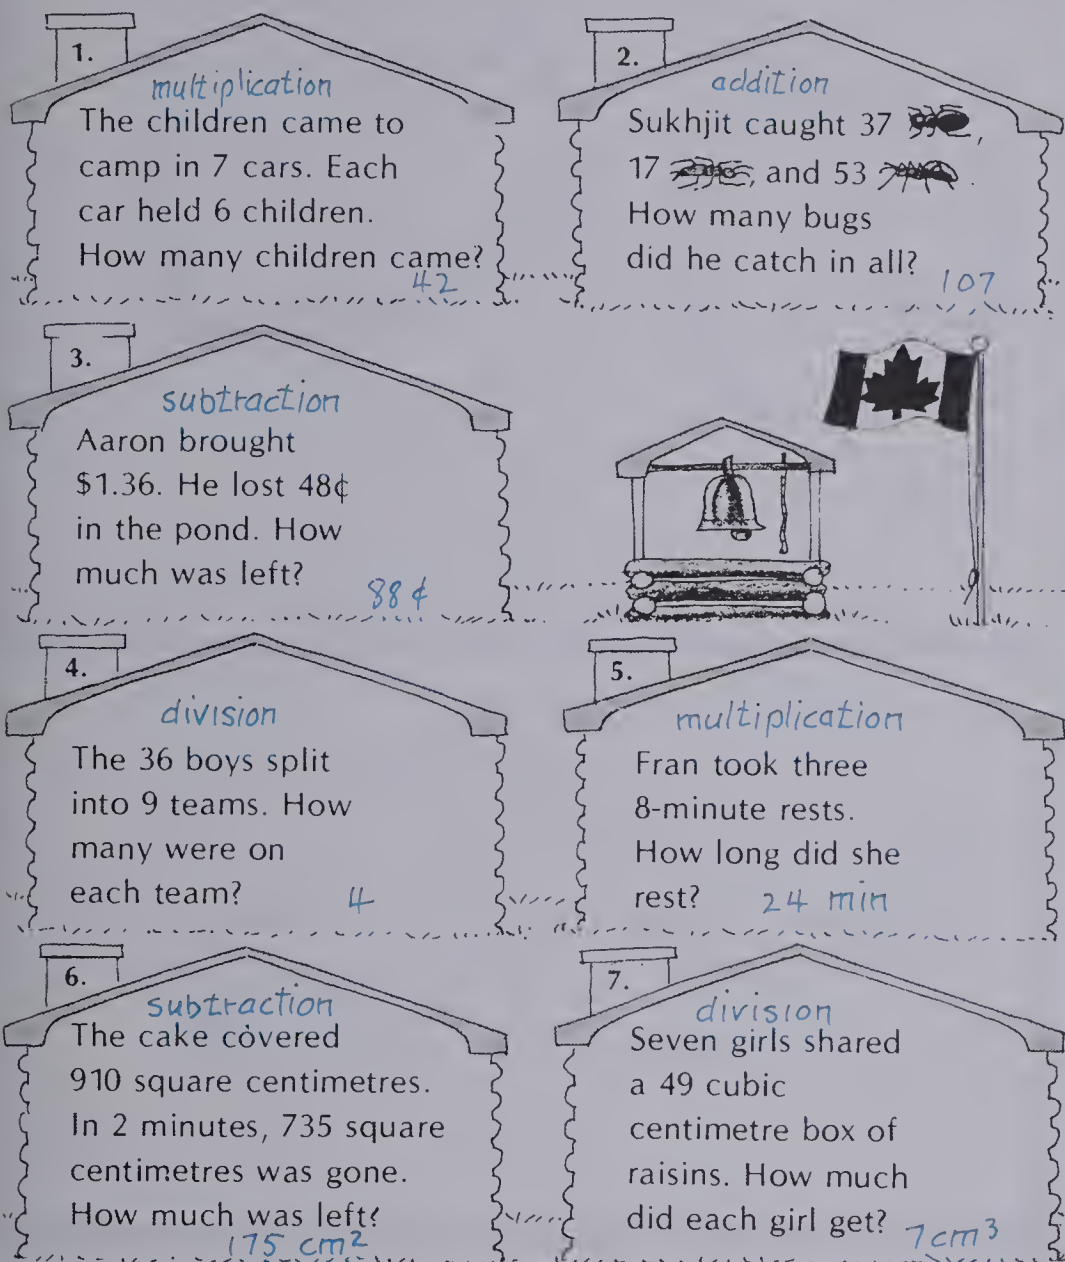 1.
multiplication
The children came to
camp in 7 cars. Each
car held 6 children.
How many children came?
42
2.
addition
Sukhjit caught 37 ,
17 , and 53 .
How many bugs
did he catch in all?
107
3.
subtraction
Aaron brought
$1.36. He lost 48¢
in the pond. How
much was left?
88¢
4.
division
The 36 boys split
into 9 teams. How
many were on
each team? 4
5.
multiplication
Fran took three
8-minute rests.
How long did she
rest? 24 min
6.
subtraction
The cake covered
910 square centimetres.
In 2 minutes, 735 square
centimetres was gone.
How much was left?
175 cm²
7.
division
Seven girls shared
a 49 cubic
centimetre box of
raisins. How much
did each girl get? 7cm³